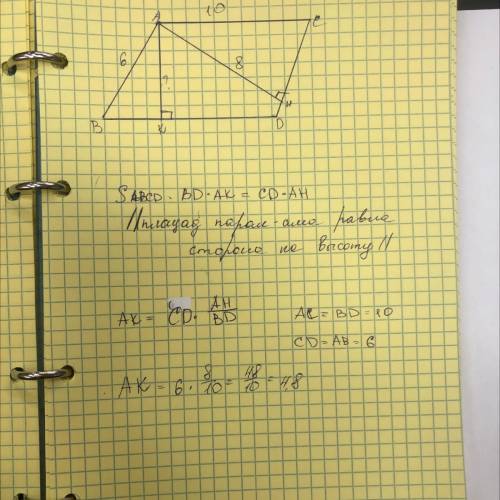 10
A C
6 8
?
H
B K D
SABCD = BD · AK = CD · AH
// площад парал-ама равна
сторона на высоту //
AK = CD · AH/BD
AC = BD = 10
CD = AB = 6
AK = 6 · 8/10 = 48/10 = 4,8